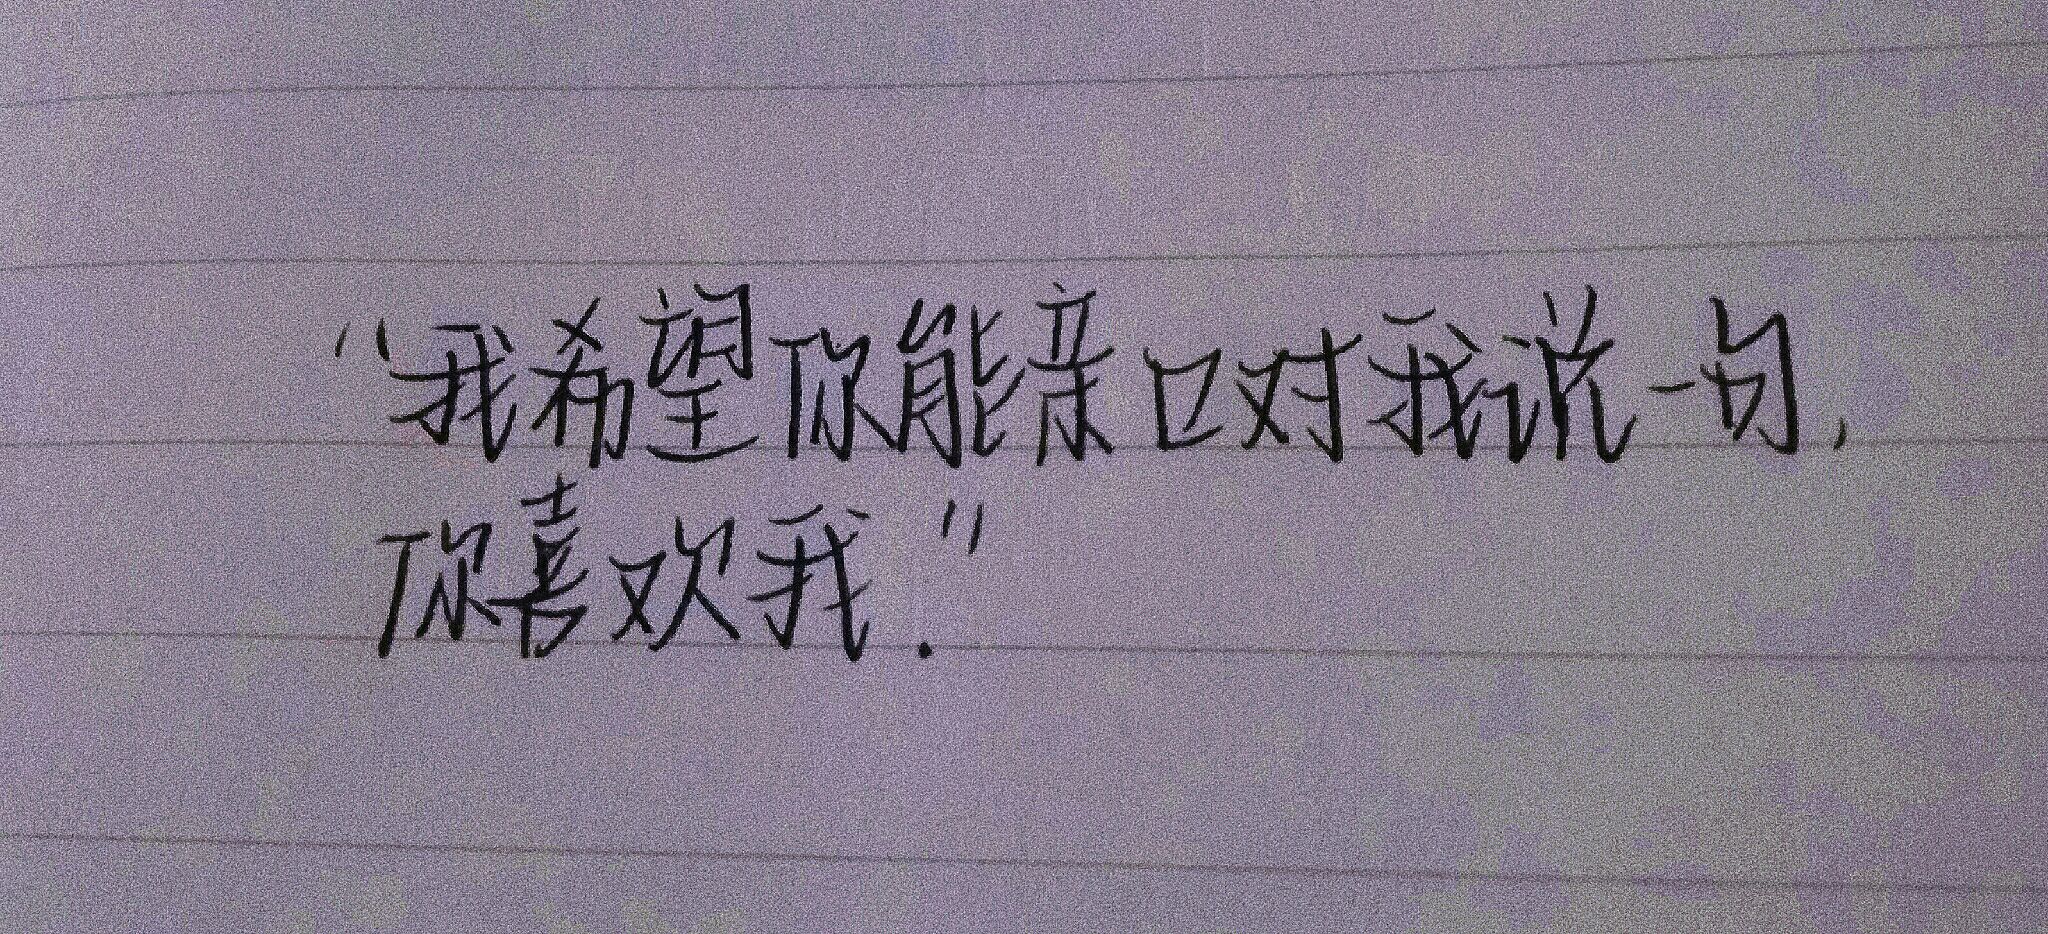 "我希望你能亲口对我说一句,
你喜欢我."